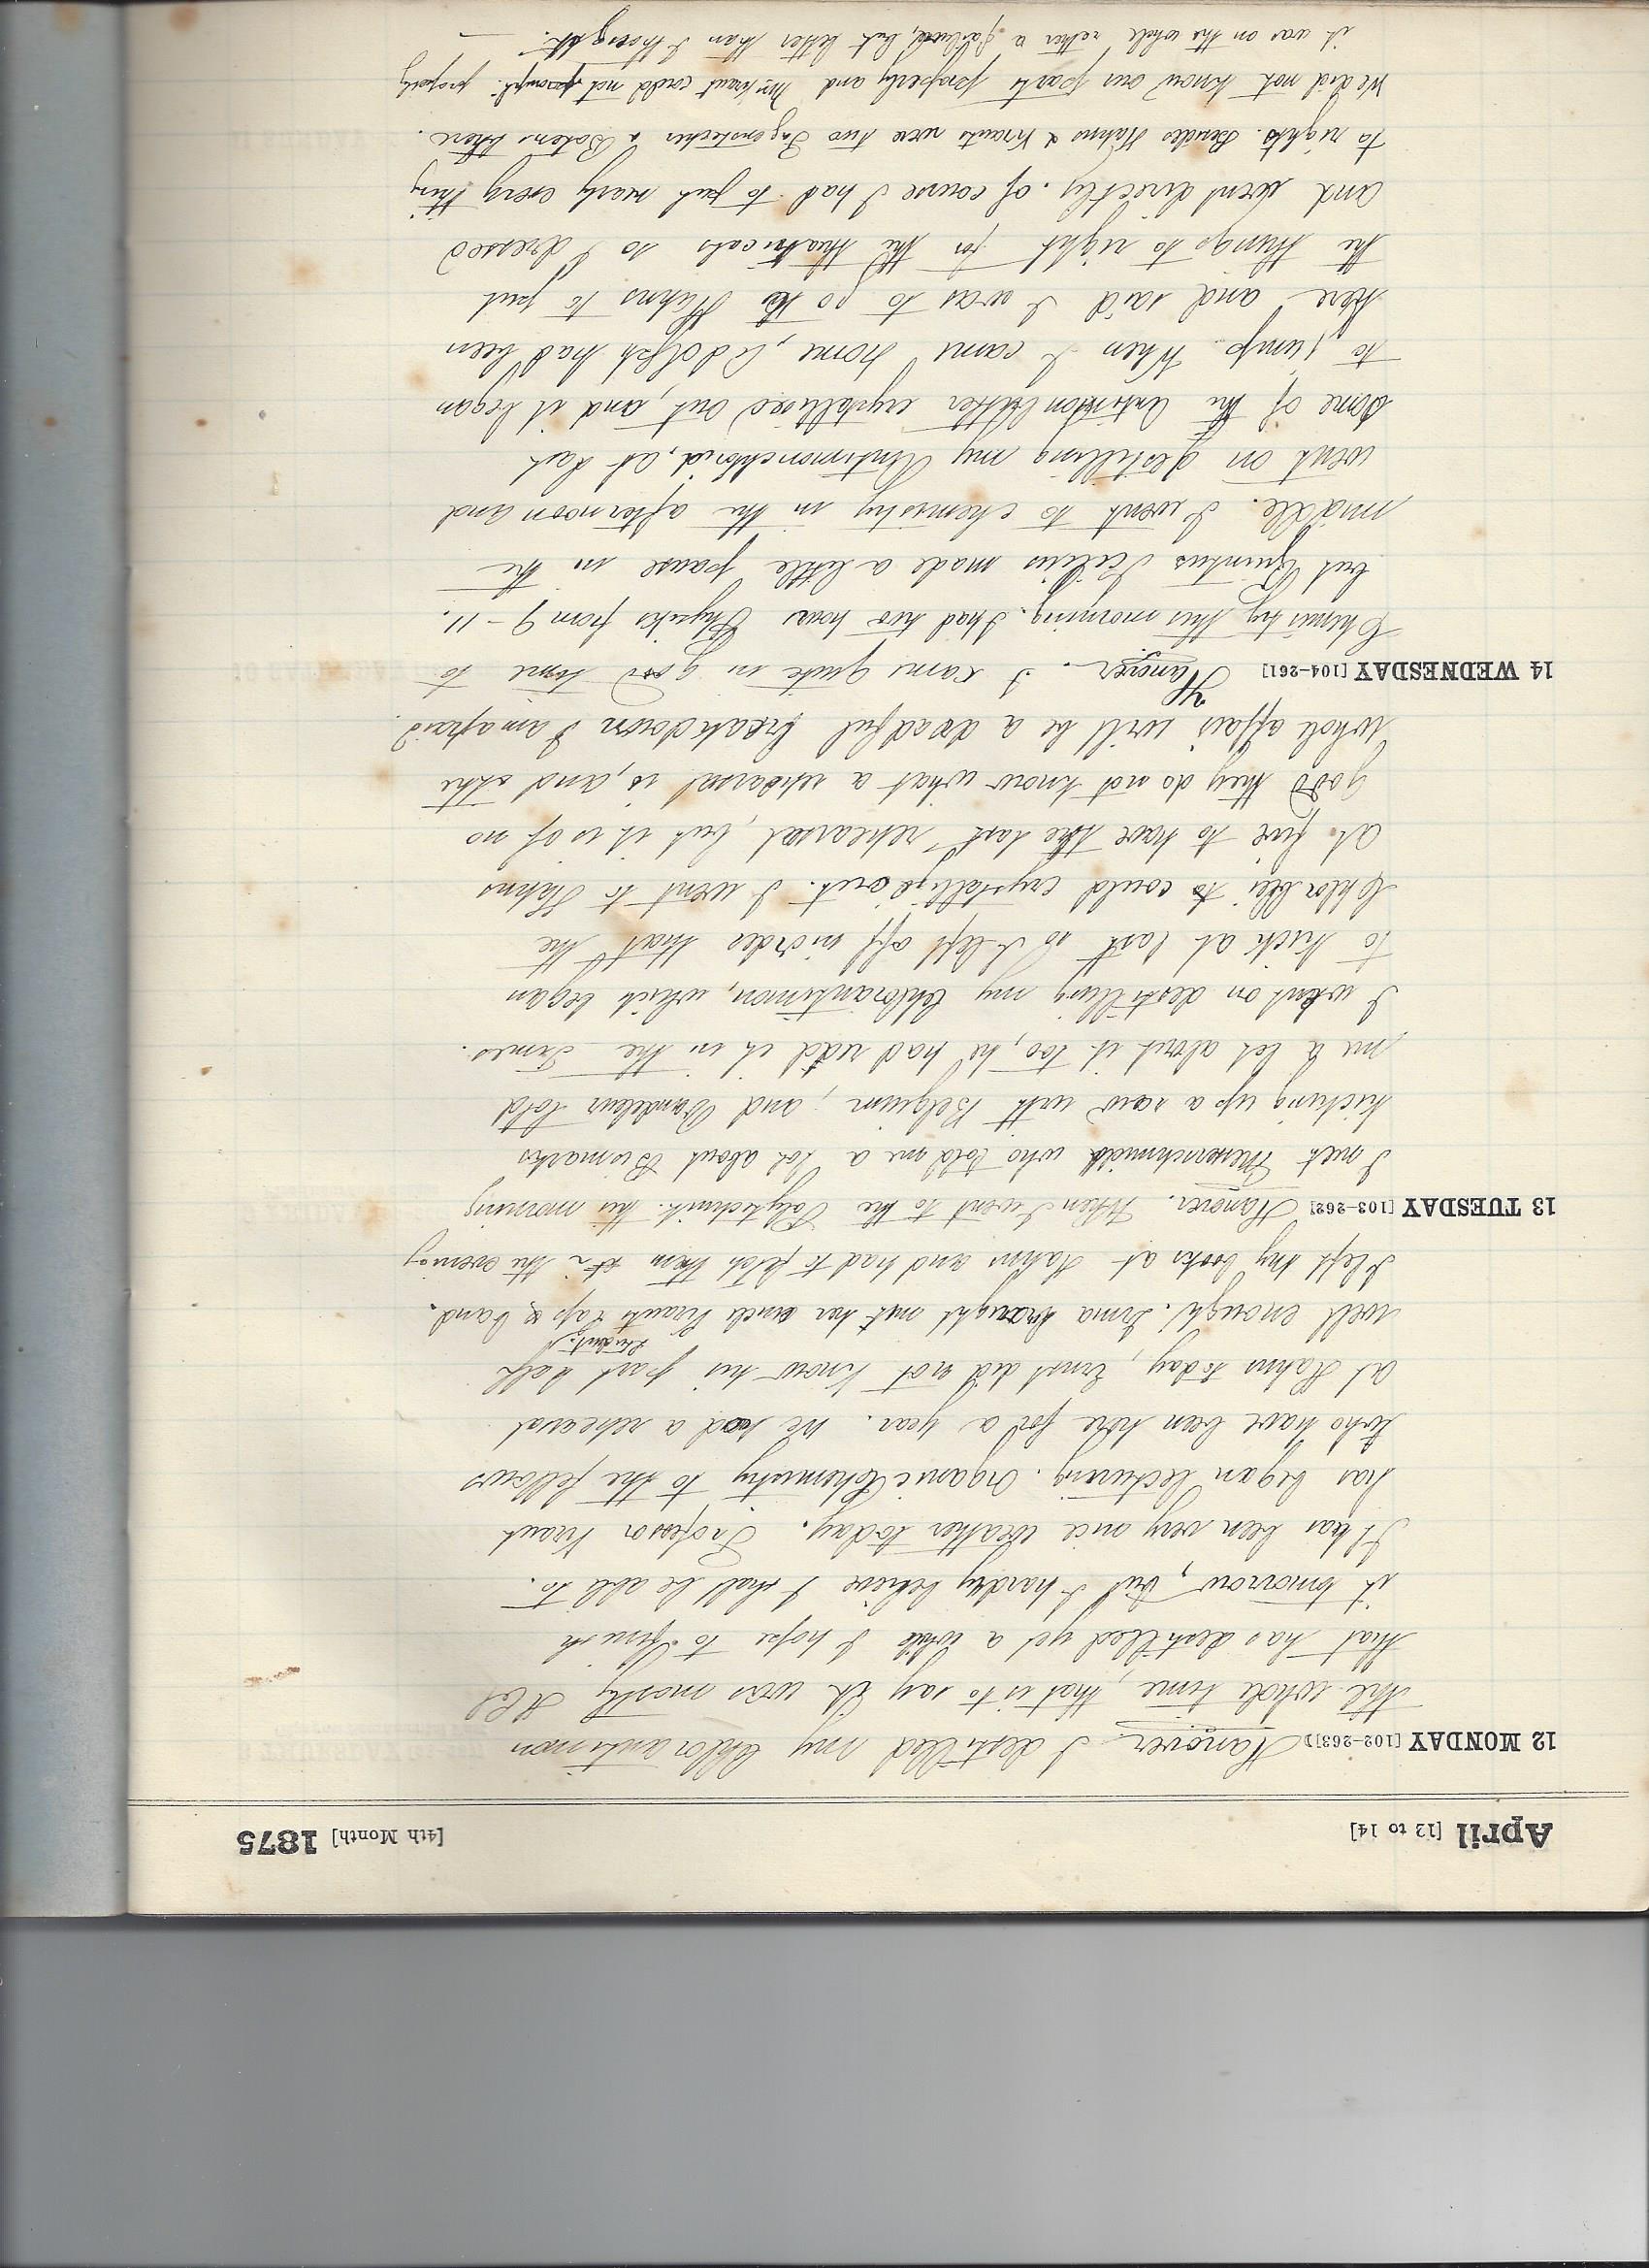 April [12 to 14] [4th Month] 1875
12 MONDAY [102-263] Hanover. I destilled my Chlorantimon
the whole time, that is to say it was mostly HCl
that has destilled yet a while I hope to finish
it tomorrow, but I hardly believe I shall be able to.
It has been very nice weather today. Professor Kraut
has began lecturing. Organic Chemistry to the fellows
who have been here for a year. We had a rehearsal
at Hahns today, Ernst did not know his part half
well enough. Emma brought met her uncle Krauts Caps & band.
student.
I left my books at Hahns and had to fetch them in the evening
13 TUESDAY [103-262] Hanover. When I went to the Polytechnik this morning
I met Messerschmidt who told me a lot about Bismarks
kicking up a row with Belgium, and Vandeleur told
me a lot about it too, he had read it in the Times.
I went on destilling my Chlorantimon, which began
to kick at last so I left off inorder that the
Chlorblei to could crystallize out. I went to Hahns
at five to have the last rehearsal, but it is of no
good they do not know what a rehearsal is, and the
whole affair will be a dreadful breakdown I am afraid.
14 WEDNESDAY [104-261] Hanover. I came quite in good time to
Chemistry this morning. I had two hours Physiks from 9-11.
but Quintus Icilius made a little pause in the
middle. I went to chemistry in the afternoon and
went on destilling my Antimonchlorid, at last
some of the Antimonbutter crystallised out, and it began
to jump. When I came home, Adolph had been
here and said I was to go to Hahns to put
the things to right for the theatricals so I dressed
and went directly. Of course I had to put nearly every thing
to rights. Besides Hahns & Krauts were two & a there.
We did not know our parts properly and Mr Kraut could not prompt properly
it was on the whole rather a failure, but better than I thought.